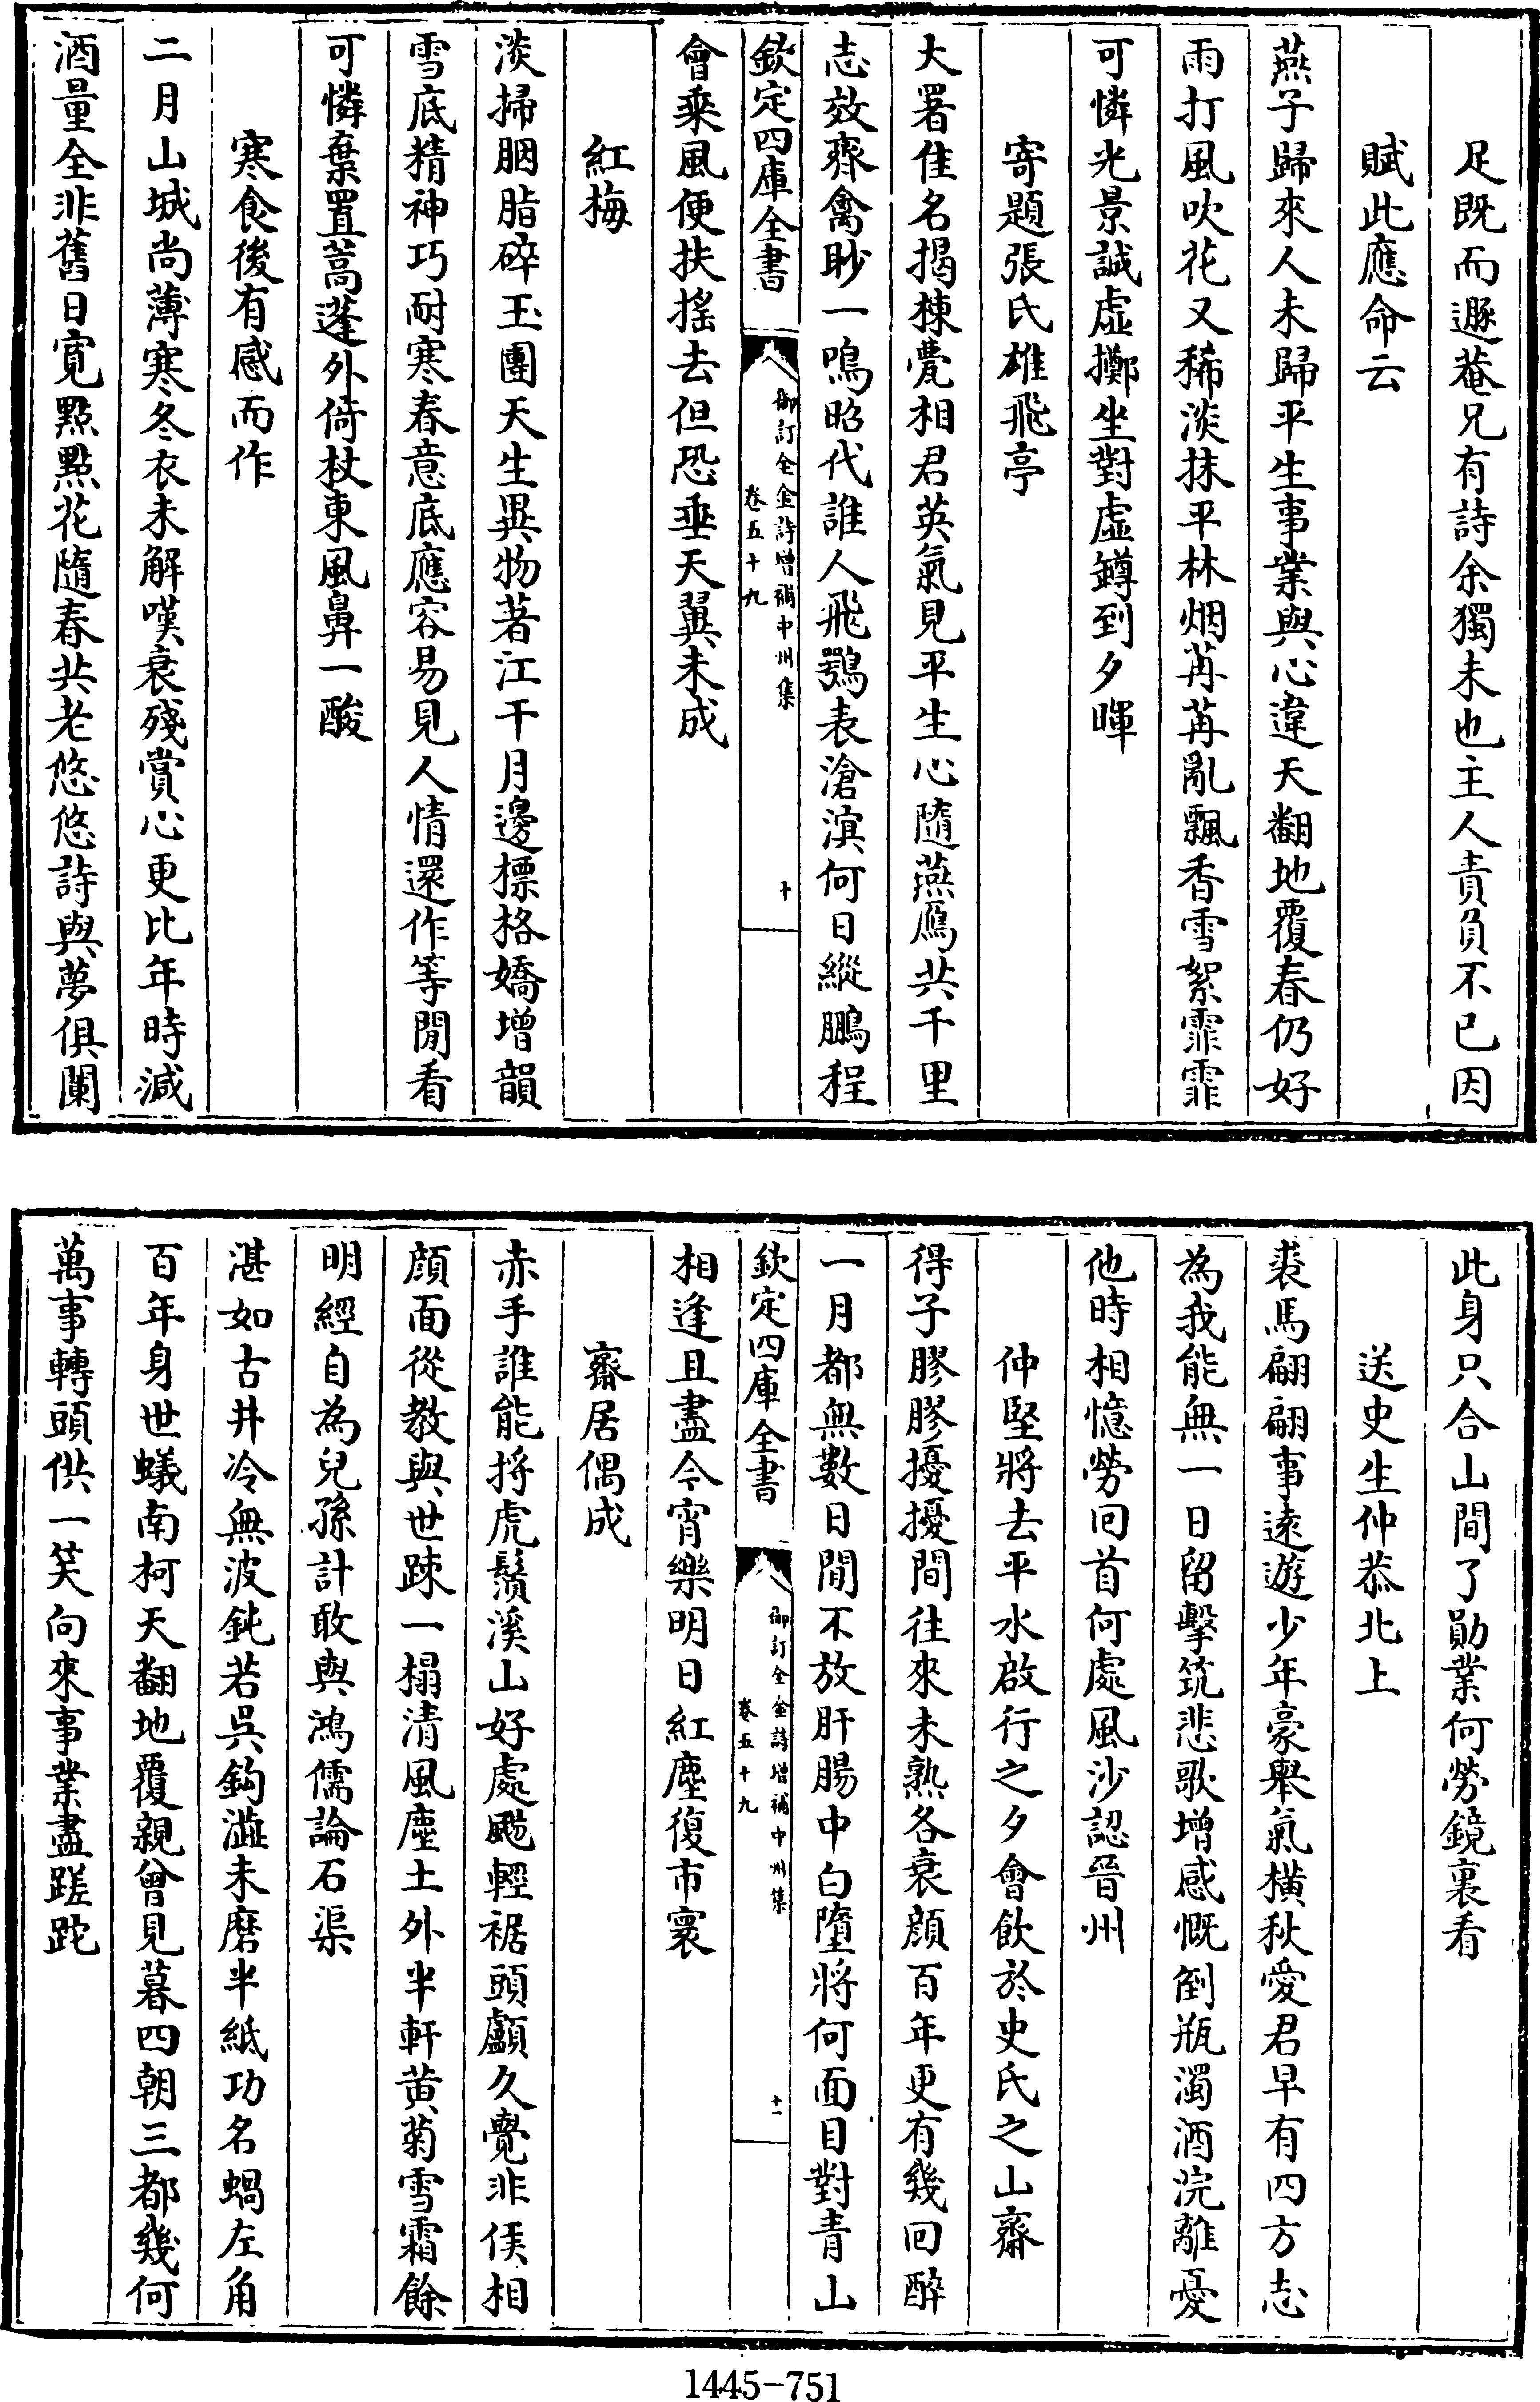 足既而遯菴兄有詩余獨未也主人責負不已因
賦此應命云
燕子歸來人未歸平生事業與心違天翻地覆春仍好
雨打風吹花又稀淡抹平林烟苒苒亂飄香雪絮霏霏
可憐光景誠虛擲坐對虛罇到夕暉
寄題張氏雄飛亭
大署佳名揭棟甍相君英氣見平生心隨燕鴈共千里
志效齊禽眇一鳴昭代誰人飛鶚表滄溟何日縱鵬程
欽定四庫全書
御訂全金詩增補中州集
卷五十九
十
會乘風便扶搖去但恐垂天翼未成
紅梅
淡掃胭脂碎玉團天生異物著江干月邊標格嬌增韻
雪底精神巧耐寒春意底應容易見人情還作等閒看
可憐棄置蒿蓬外倚杖東風鼻一酸
寒食後有感而作
二月山城尚薄寒冬衣未解嘆衰殘賞心更比年時減
酒量全非舊日寬點點花隨春共老悠悠詩與夢俱闌
此身只合山間了勛業何勞鏡裏看
送史生仲恭北上
裘馬翩翩事遠遊少年豪舉氣橫秋愛君早有四方志
為我能無一日留擊筑悲歌增感慨倒瓶濁酒浣離憂
他時相憶勞回首何處風沙認晉州
仲堅將去平水啟行之夕會飲於史氏之山齋
得子膠膠擾擾間往來未熟各衰顏百年更有幾回醉
一月都無數日閒不放肝腸中白墮將何面目對青山
欽定四庫全書
御訂全金詩增補中州集
卷五十九
十一
相逢且盡今宵樂明日紅塵復市寰
齋居偶成
赤手誰能捋虎鬚溪山好處颺輕裾頭顱久覺非侯相
顏面從教與世踈一榻清風塵土外半軒黄菊雪霜餘
明經自為兒孫計敢與鴻儒論石渠
湛如古井冷無波鈍若吳鈎澁未磨半紙功名蝸左角
百年身世蟻南柯天翻地覆親曾見暮四朝三都幾何
萬事轉頭供一笑向來事業盡蹉跎
1445-751